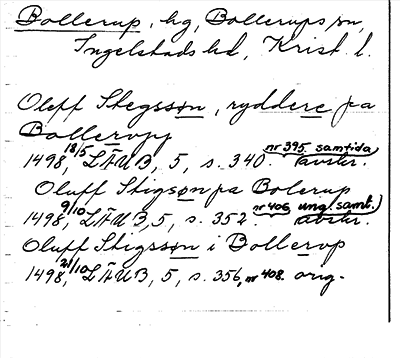 Bollerup, hg, Bollerups sn,
Ingelstads hd, Krist. l.
Oleff Stegssøn, ryddere pa
Bollerupp
1498 18/5, LÄUB, 5, s. 340. nr 395. samtida avskr.
Oluff Stigsøn pa Bolerup
1498 9/10, LÄUB, 5, s. 352. nr 406, ung. samt. avskr.
Oluff Stigssøn i Bollerup
1498 21/10, LÄUB, 5, s. 356, nr 408. orig.